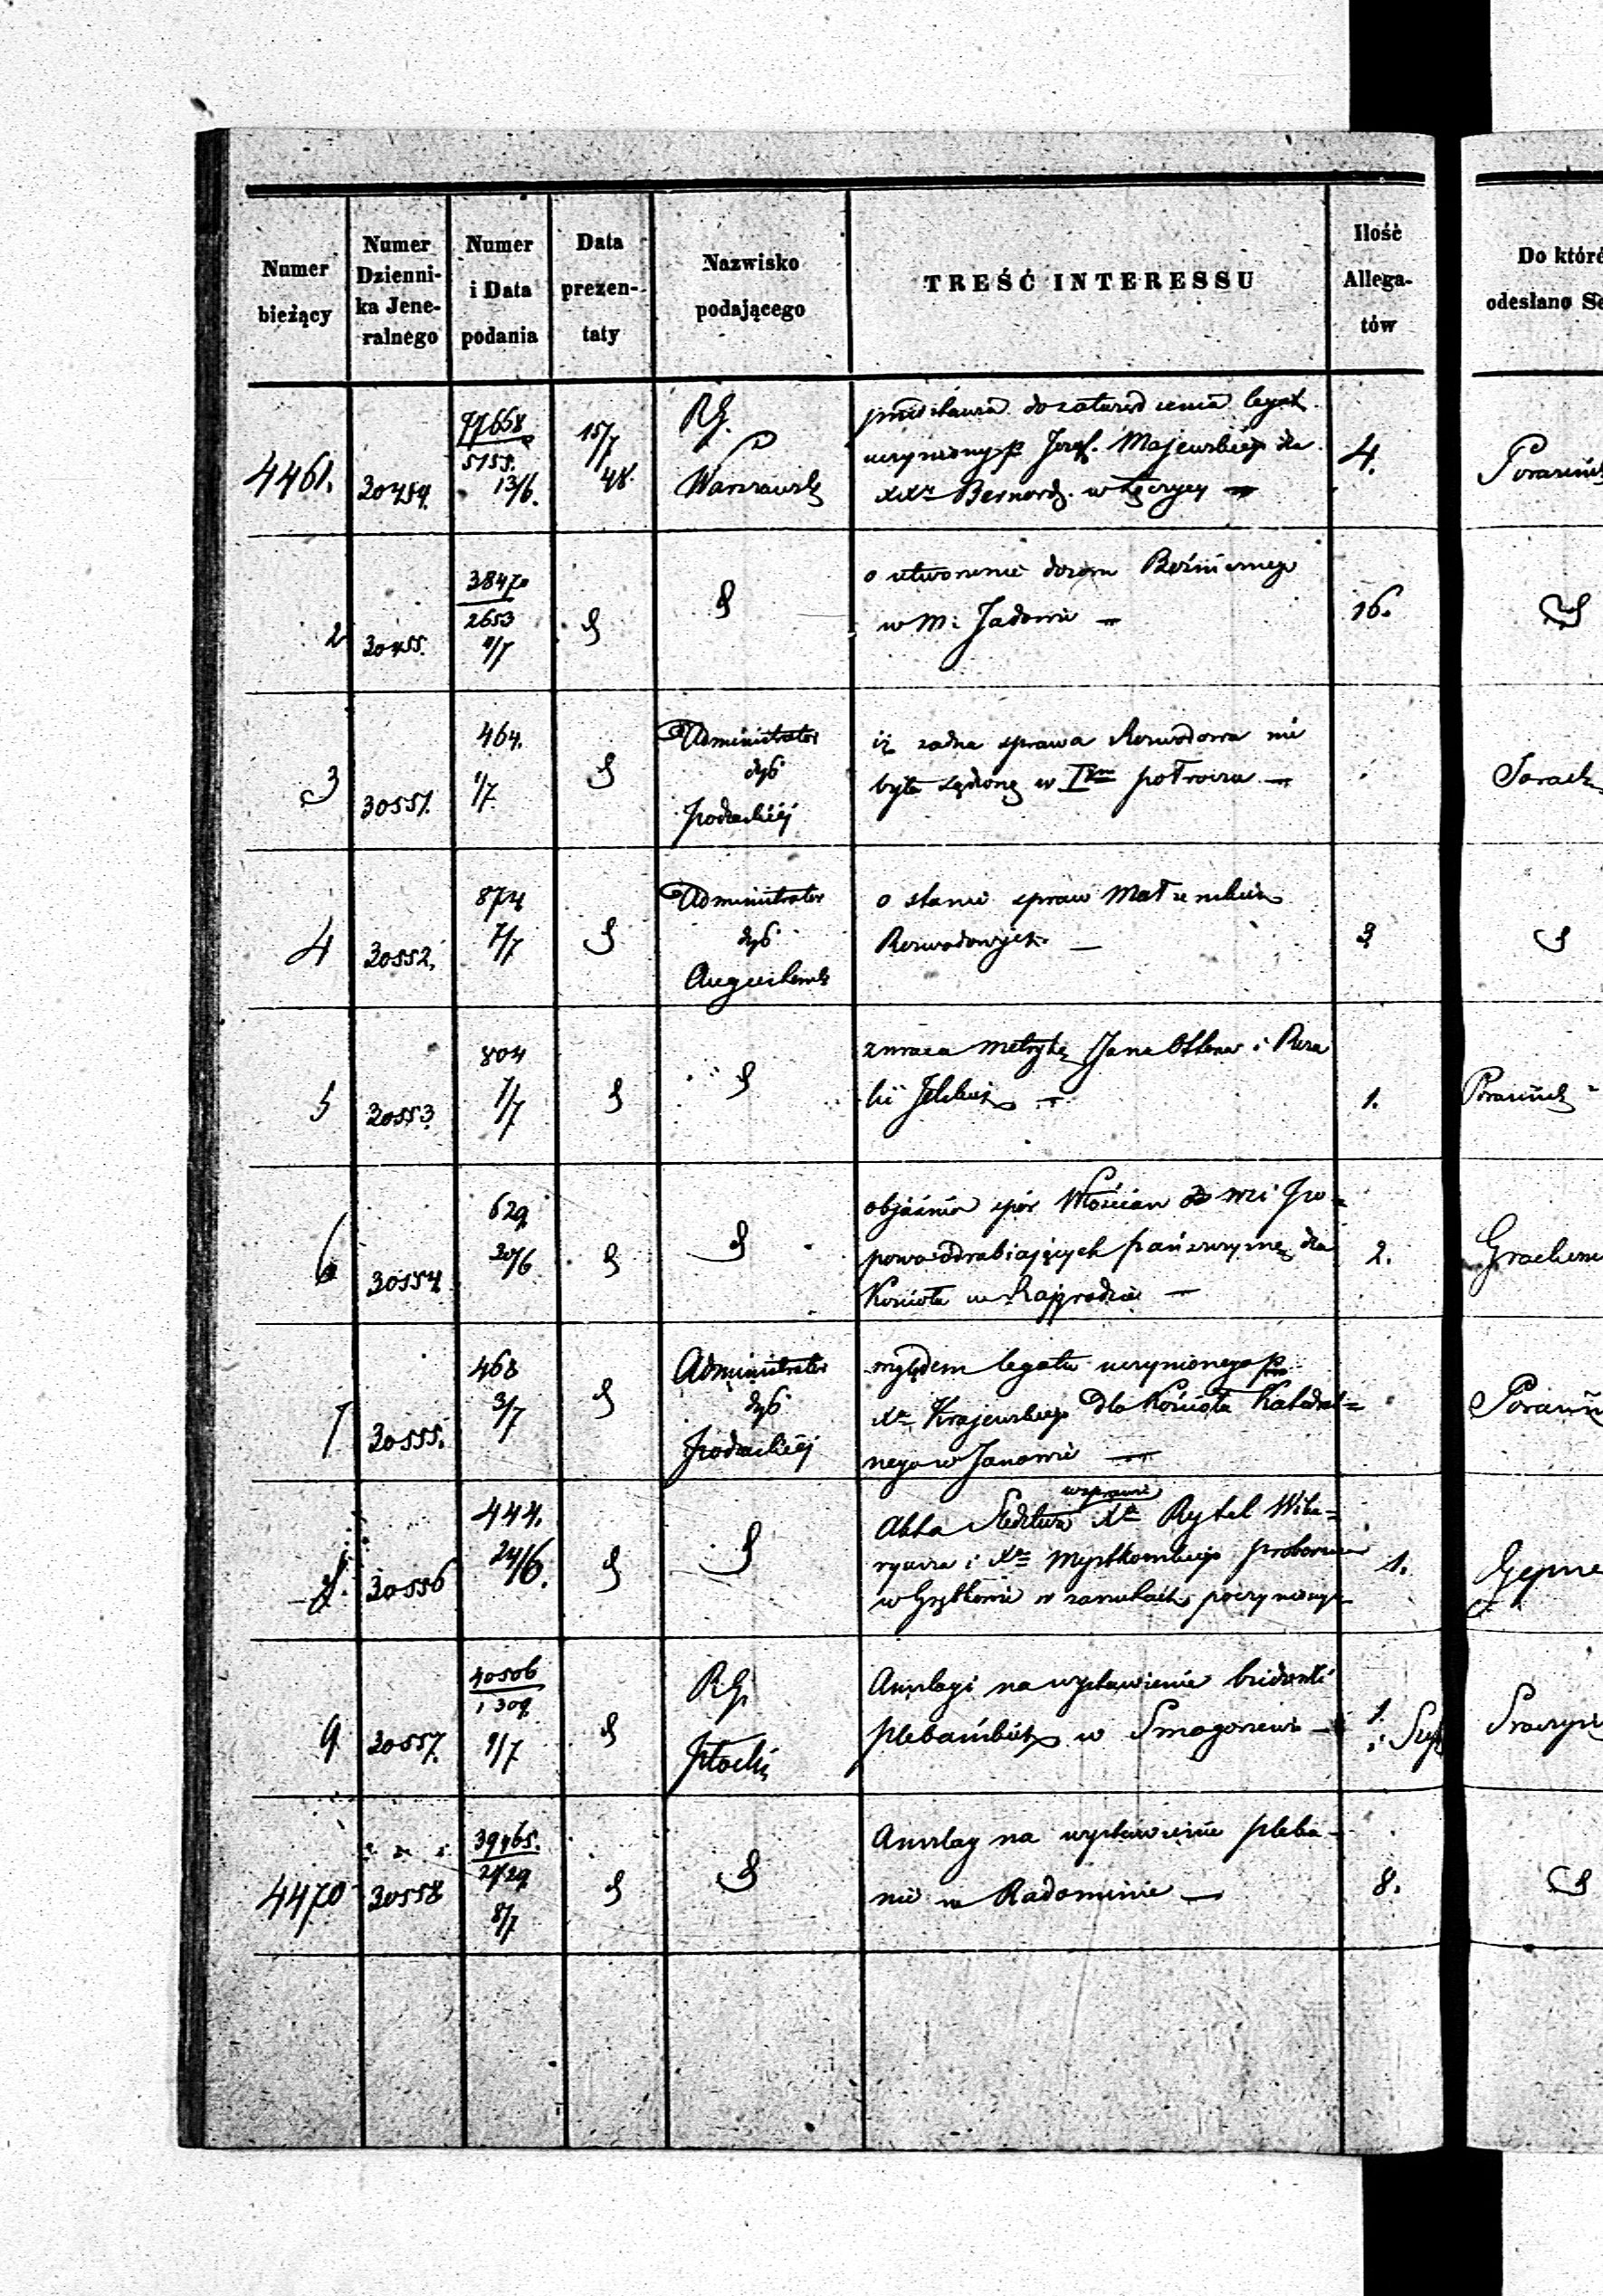 Numer bieżący
Numer Dzienni-
ka Jene-
ralnego
Numer i Data podania
Data prezen-
taty
Nazwisko podającego
TREŚĆ INTERESSU
Ilość Allega-
tów
Do któré
odesłano Se
4461.
30454.
77668
5155.
13/6.
15/7
48.
RG.
Warszawski
przedstawia do zatwierdzenia legat
uczyniony p. Józef. Majewskiego dla
XXr Bernard. w Łęczycy —
4.
2
30455.
38470
2653
4/7
o utworzenie dozoru Bożnicznego
w m: Jadowie —
16.
3
30551.
464.
1/7.
Administrator
dyć
podlaskiéj
iż żadna sprawa Rozwodowa nie
była sądzoną w I półroczu —
4
30552.
874
7/7
Administrator
dyć
Augustowski
o stanie spraw Małżeńskich
Rozwodowych. —
3
5
30553.
804
7/7
zwraca metrykę Jana i Roza
lii —
1.
6
30554
629
30/6
objaśnia spór Włościan ze wsi Po-
powa odrabiających pańszczyznę dla
Kościoła w Rajgrodzie —
2.
7
30555.
468
3/7
Administrator
dyć
podlaskiéj
względem legatu uczynionego p.
Xa Krajewskiego dla Kościoła Katedral=
nego w Janowie —
8.
30556
444.
24/6.
wsprawie
Akta Śledztwa Xa Rytel Wika=
ryusza i Xa Mystkowskiego proboszcza
w o zarzutach poczynionych
1.
9
30557.
40506
1309
1/7
RG.
Płocki
Anszlagi na wystawienie budowli
plebańskich w Smogorzewie —
1.
4470
30558
39465.
2129
8/7
Anszlag na wystawienie pleba-
nii w Radominie —
8.